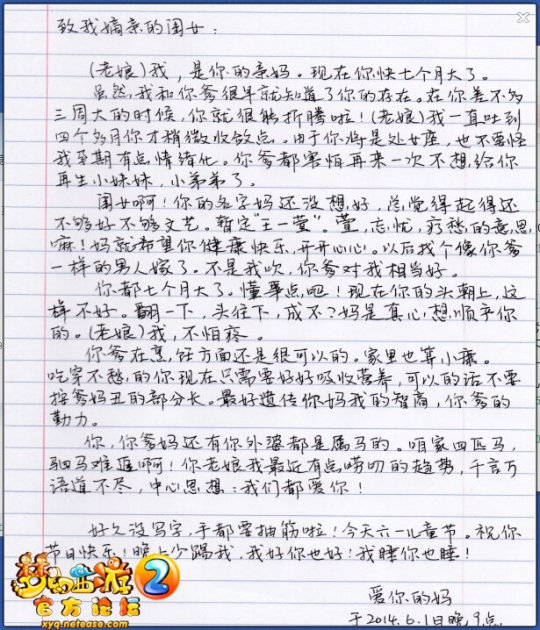 致我嫡亲的闺女：
(老娘)我，是你的亲妈。现在你快七个月大了。
虽然，我和你爹很早就知道了你的存在。在你差不多
三周大的时候，你就很能折腾啦！(老娘)我一直吐到
四个多月你才稍微收敛点。由于你将是处女座，也不要怪
我至期有点情绪化。你爹都害怕再来一次不想给你
再生小妹妹，小弟弟了。
闺女啊！你的名字妈还没想好，总觉得起得还
不够好不够文艺。暂定“王一萱”。萱，忘忧，疗愁的意思
嘛！妈就希望你健康快乐，开开心心。以后找个像你爹
一样的男人嫁了。不是我吹，你爹对我相当好。
你都七个月大了。懂事点吧！现在你的头朝上，这
样不好。翻一下，头往下，成不？妈是真心想顺乎你
的。(老娘)我，不怕疼。
你爹在烹饪方面还是很可以的。家里也算小康。
吃穿不愁的你现在只需要好好吸收营养，可以的话不要
按爹妈丑的部分长。最好遗传你妈我的智商，你爹的
勤力。
你，你爹妈还有你外婆都是属马的。咱家四匹马，
驷马难追啊！你老娘我最近有点唠叨的趋势，千言万
语道不尽，中心思想：我们都爱你！
好久没写字，手都要抽筋啦！今天六一儿童节。祝你
节日快乐！晚上少踢我，我好你也好！我睡你也睡！
爱你的妈
于2014.6.1日晚9点
梦幻西游2
官方论坛
xyq.netease.com